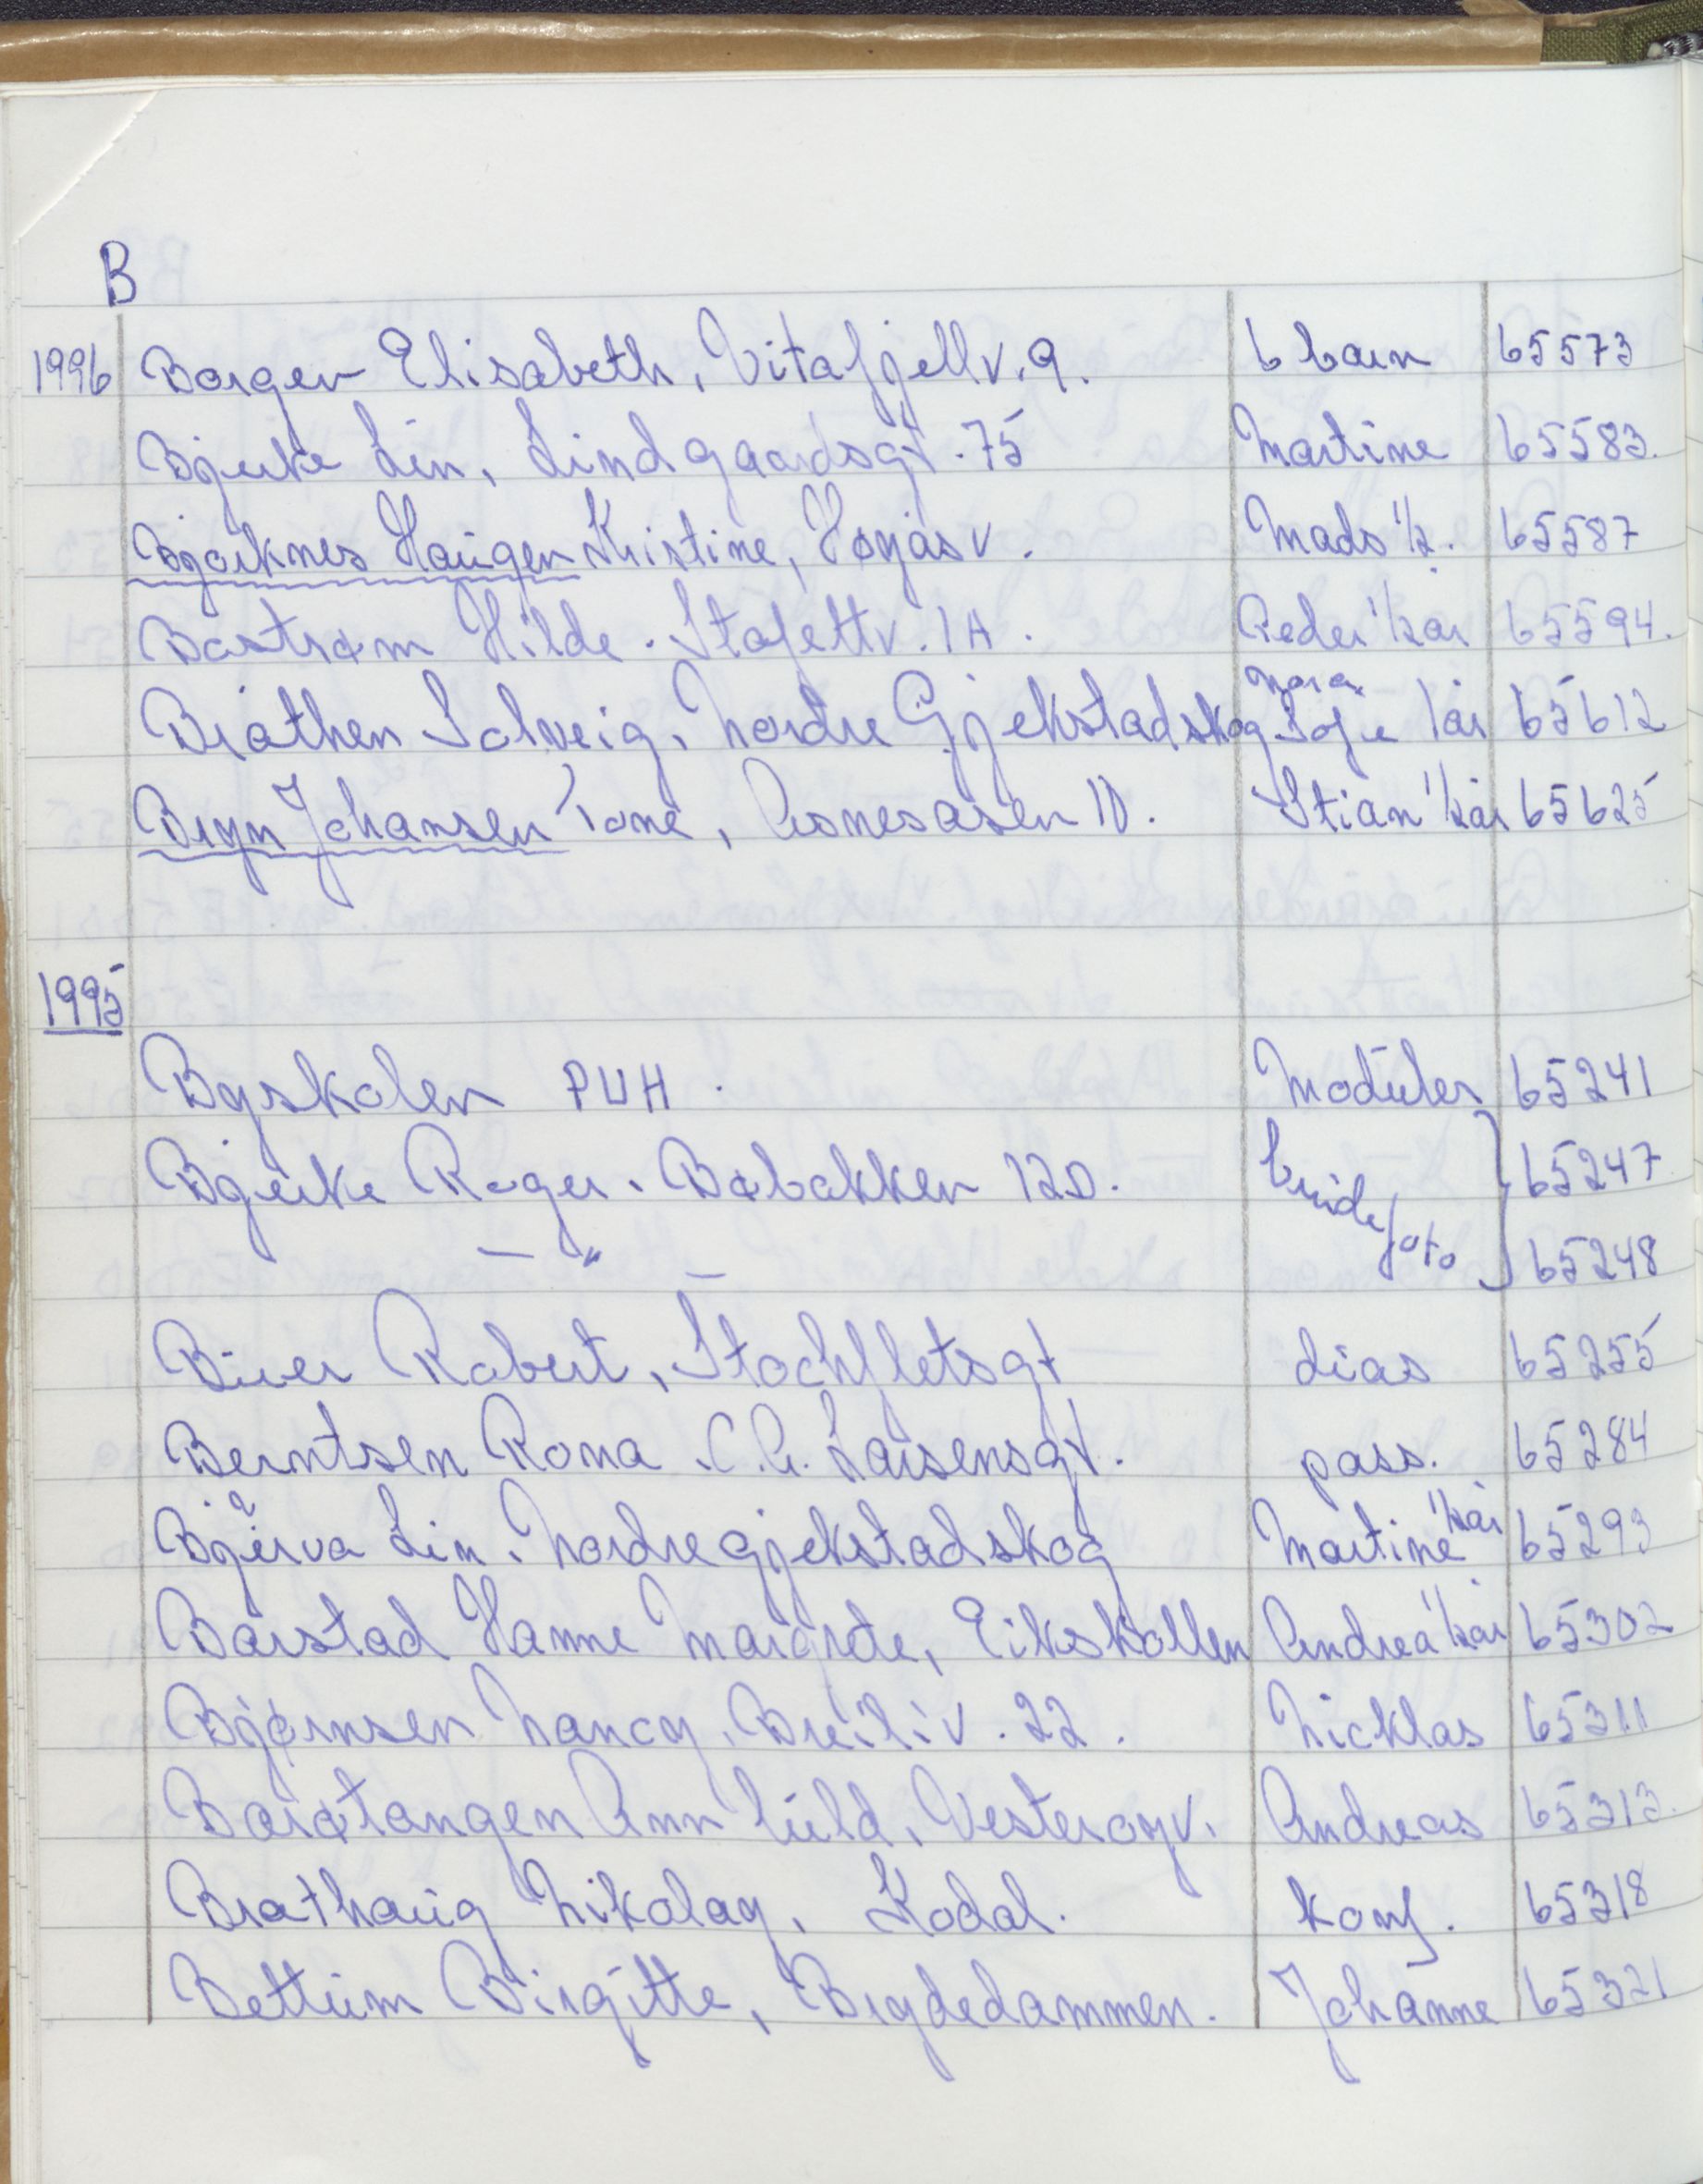 B
1996 Borgen Elisabeth, Vitafjellv. 9. 6 barn 65573
Bjerke Lin, Lindgaardsgt. 75 Martine 65583.
Bjerknes Haugen Kristine, Høyjåsv. Mads 1/2. 65587
Bøstrøm Hilde. Stafettv. 1A. Peder 1/2 år 65594.
Nora
Bråthen Solveig, Nordre Gjekstadskog Sofie 1år 65612
Bryn Johansen Tone, Åsnesåsen 10. Stian 1/2 år 65625
1995
Byskolen PUH. Moduler 65241
Bjerke Roger. Bøbakken 12D. brudefoto 65247
— " — 65248
Buer Robert, Stockfletsgt dias 65255
Berntsen Rona. C.A. Larsensgt. pass. 65284
Bjerva Lin. Nordre gjekstadskog Martine 1/2 år 65293
Barstad Hanne Margrete, Eikskollen Andrea 1/2 år 65302
Bjørnsen Nancy, Breiliv. 22. Nicklas 65311
Ann Vesterøyv. Andreas 65313.
Bråthaug Nikolay, Kodal. konf. 65318
Bettum Birgitte, Brydedammen. Johanne 65321